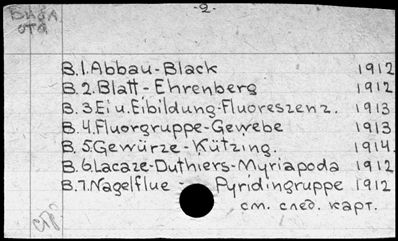 -2-
B.1.Abbau-Black 1912
B.2.Blatt-Ehrenberg 1912
B.3.Ei u.Eibildung-Fluoreszenz. 1913
B.4.Fluorgruppe-Gewebe 1913
B.5.Gewürze-Kützing. 1914.
B.6.Lacaze-Duthiers-Myriapoda 1912
B.7.Nagelflue - Pyridingruppe 1912
см. след. карт.